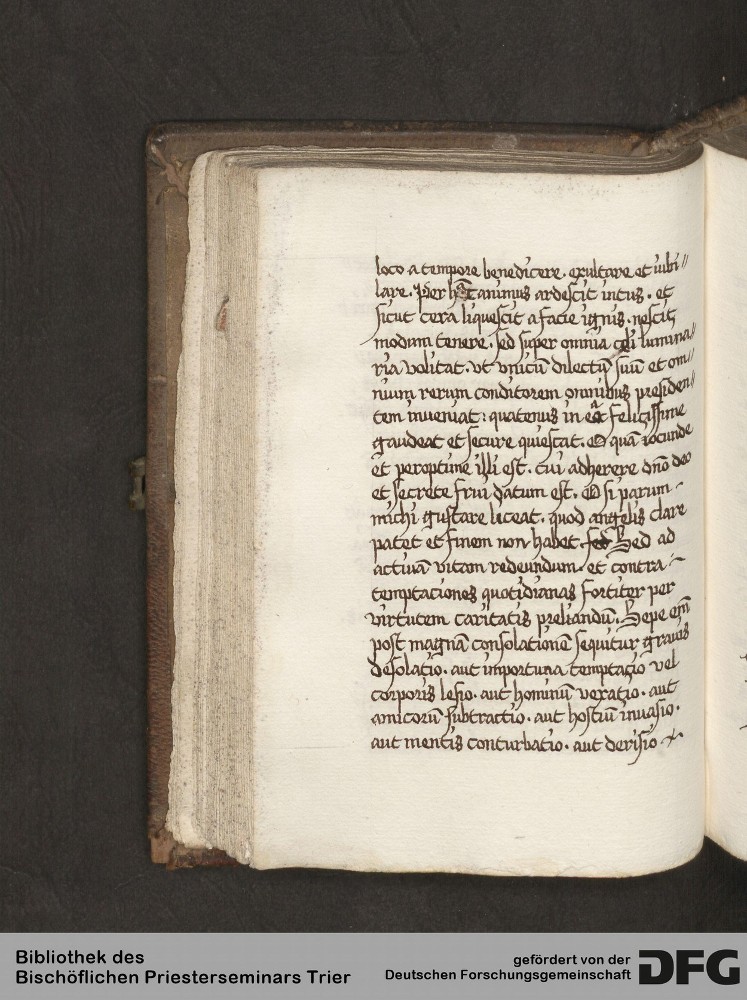 loco a tempore benedicere. exultare et iubi//
lare. Per hec animus ardescit intus. et
sicut cera liquescit a facie ignis. nescit
modum tenere. sed super omnia celi lumina//
ria volitat. vt vnicū dilectū suū et om//
nium rerum conditorem omnibus presiden//
tem inueniat: quatenus in eo felicissime
gaudeat et secure quiescat. O quā iocunde
et peroptime illi est. cui adherere dn̄o deo
et secrete frui datum est. O si parum -
michi gustare liceat. quod angelis clare
patet et finem non habet. sed Sed ad
actiuā vitam redeundum. et contra -
temptaciones quotidianas fortiter per
virtutem caritatis preliandū. Sepe em̄
post magnā consolationē sequitur grauis
desolatio. aut importuna temptacio vel
corporis lesio. aut hominū vexatio. aut
amicorū subtractio. aut hostiū inuasio.
aut mentis conturbatio. aut derisio
Bibliothek des
Bischöflichen Priesterseminars Trier
gefördert von der
Deutschen Forschungsgemeinschaft
DFG